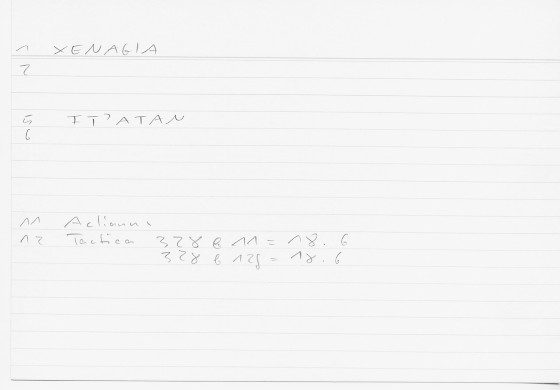 1 XENAGIA
2
5 IT'ATAN
6
11 Aelianus
12 Tactica 328 B 11 = 18. 6
328 B 12 = 18. 6